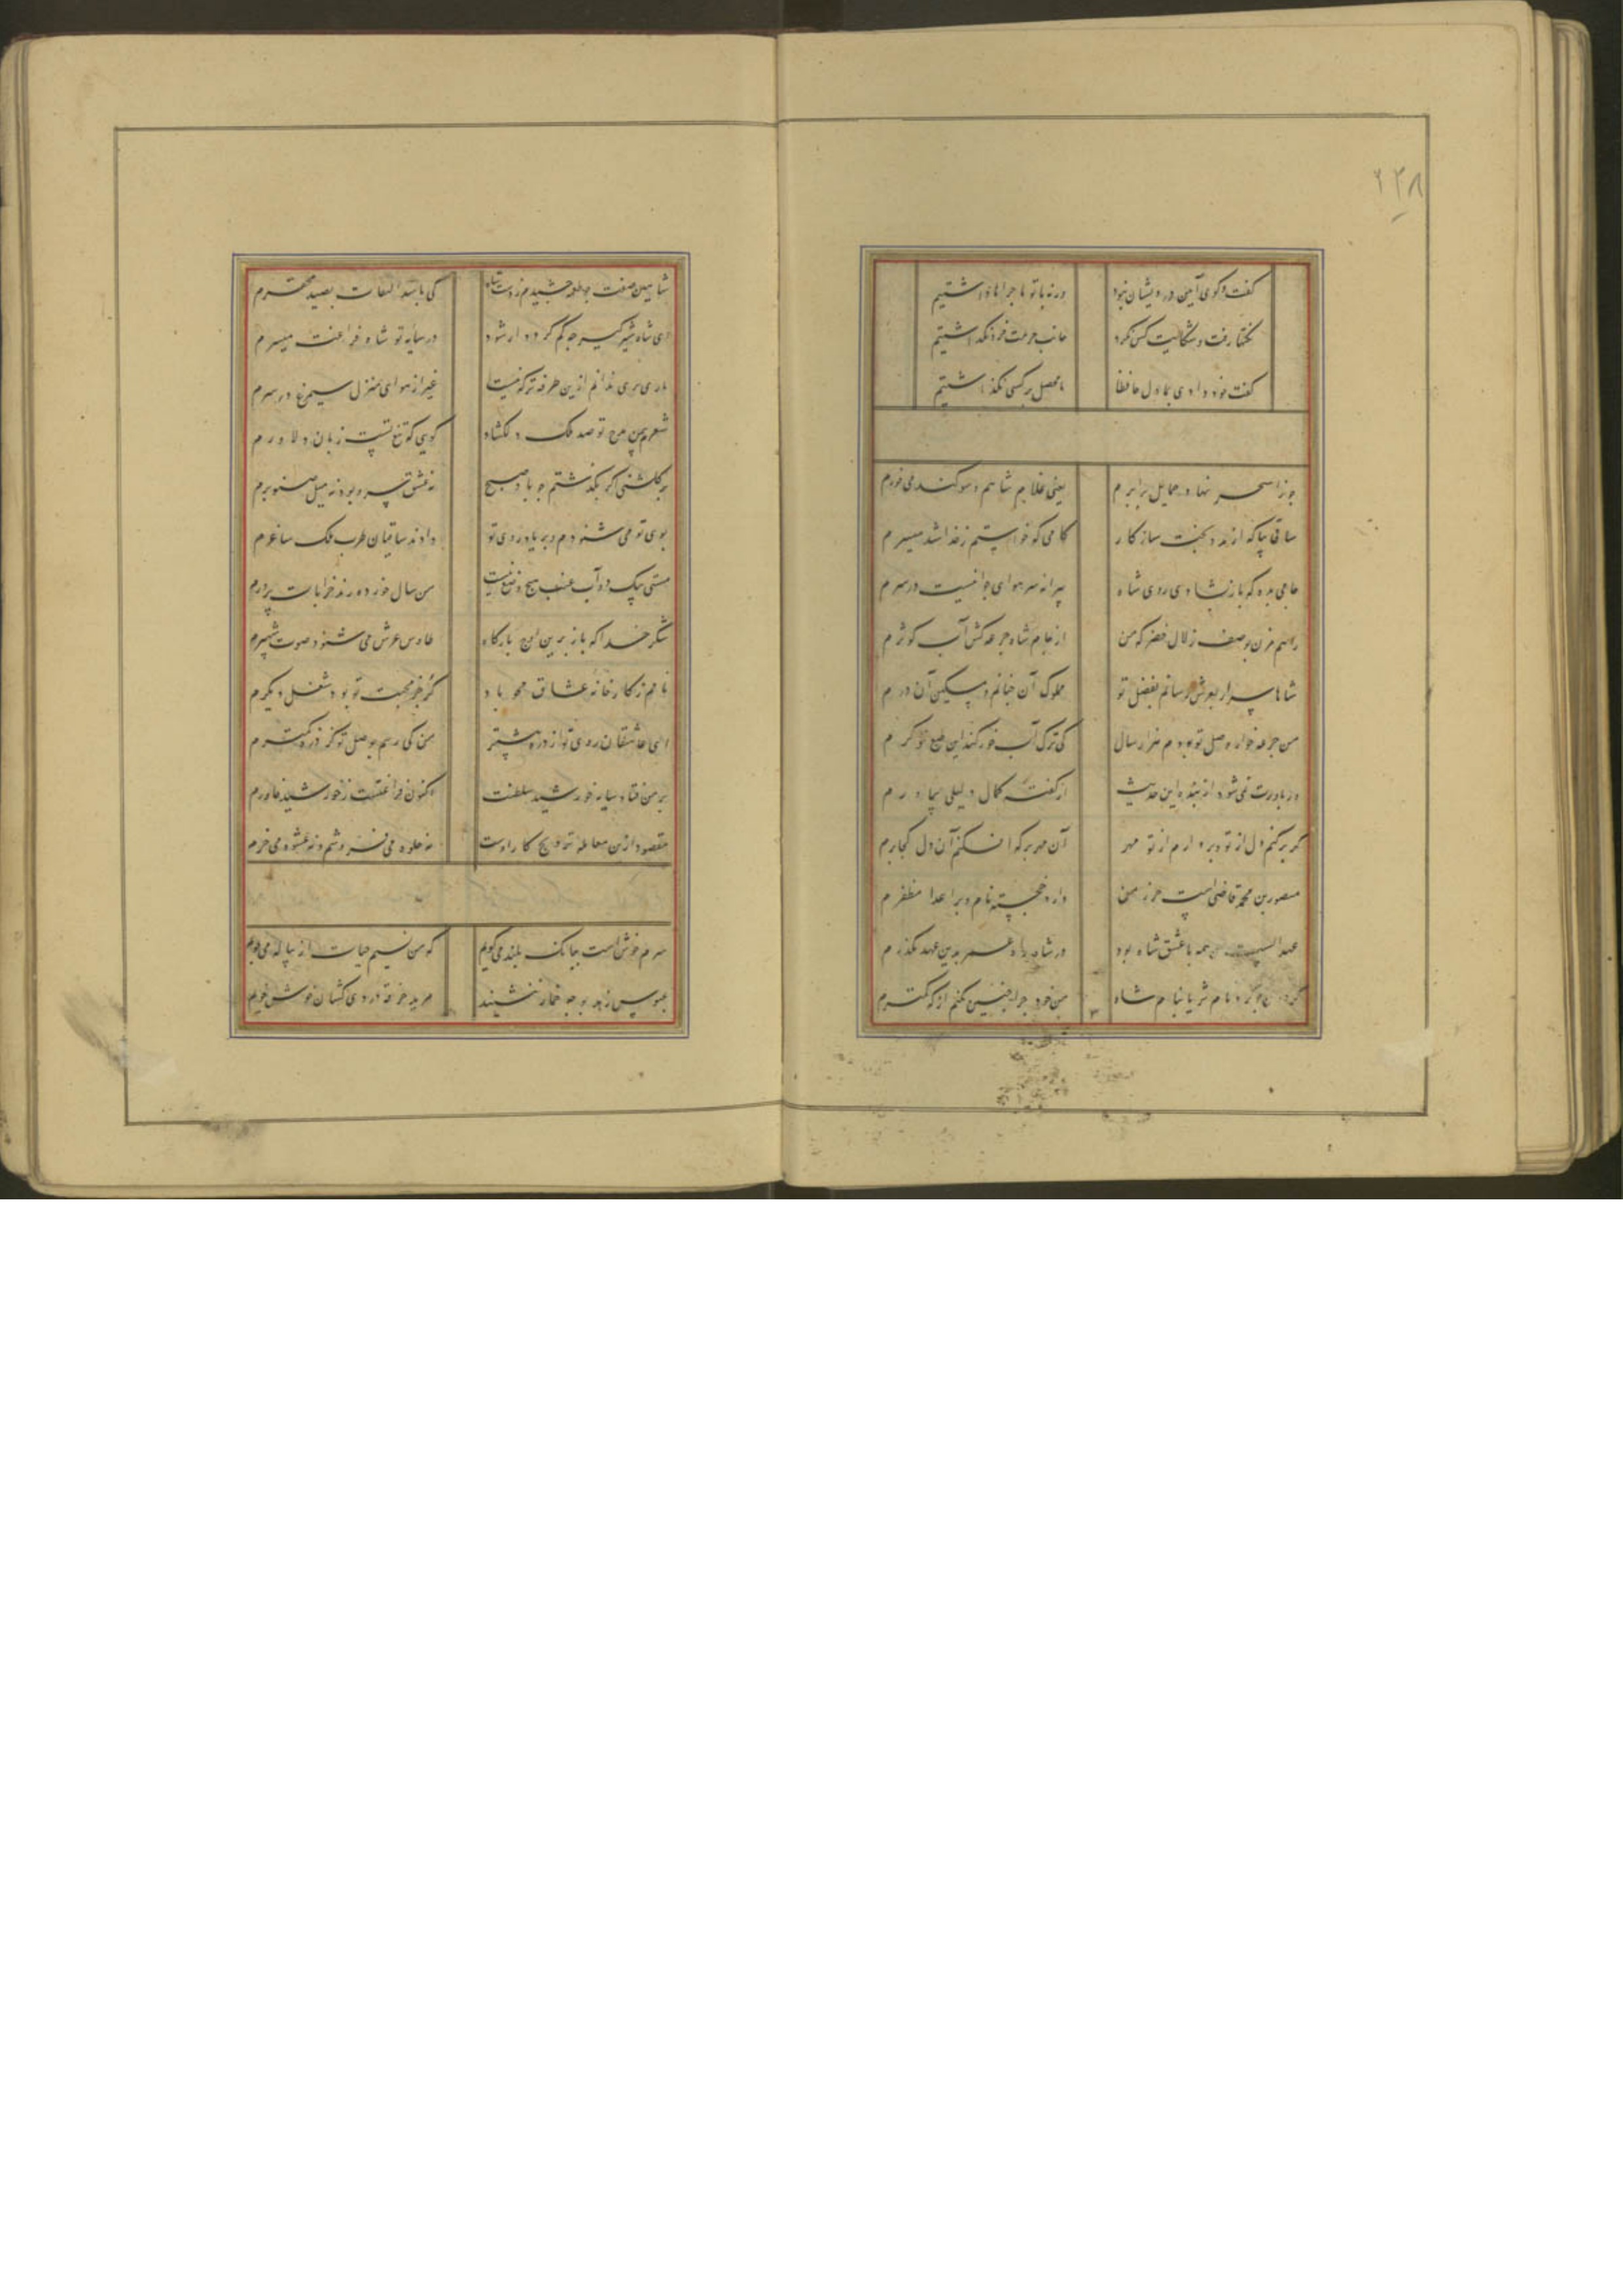 ۲۴۸
گفت و گوی آیین درویشان نبود ورنه با تو ماجراها داشتیم
نکتها رفت و شکایت کس نکرد جانب حرمت فرو نگذاشتیم
گفت خود دادی بما دل حافظا ما محصل بر کسی نگذاشتیم
جوزا سحر نهاد حمایل برابرم یعنی غلام شاهم و سوکند می خورم
ساقی بیا که از مدد بخت سازکار کامی که خواستم ز خدا شد میسرم
جامی بده که باز بشادی روی شاه پیرانه سر هوای جوانیست در سرم
راهم مزن بوصف زلال خضر که من از جام شاه جرعه کش آب کوثرم
شاها من ار بعرش رسانم بفضل تو مملوک آن جنابم و مسکین آن درم
من جرعه خوار وصل تو بودم هزار سال کی ترک آب خور کند این طبع خو کرم
ور باورت نمی شود از بنده این حدیث از گفته کمال دلیلی بیاورم
گر بر کنم دل از تو و بردارم از تو مهر آن مهر بر که افکنم آن دل کجا برم
منصور بن محمد قاضی است حرز من وز خجسته نام و بر اعدا مظفرم
عهد الست من همه با عشق شاه بود وز شاه راه عمر بدین عهد بگذرم
گردون چو کرد نام ثریا بنام شاه من خود چرا چنین نکنم از که کمترم
شاهین صفت چو طعمه چشیدم ز دست شاه کی باشد التفات بصید محقرم
ای شاه شیر گیر چه کم گردد ار شود در سایه تو شاه فراغت میسرم
غیر از هوای منزل سیمرغ در سرم
شعرم بیمن مدح تو صد ملک دل گشاد گویی که تیغ تست زبان دلاورم
بر گلشنی اگر بگذشتم چو باد صبح نه عشق سرو بود و نه میل صنوبرم
بوی تو می شنودم و بر یاد روی تو دادند ساقیان طرب یک ساغرم
مستی بیک دو آب عنب هیچ وضع نیست من سال خورده رند خرابات پرورم
شکر خدا که باز برین اوج بارگاه طاوس عرش می شنود صوت شهپرم
نامم ز کارخانه عشاق محو باد گر جز محبت تو بود شغل دیگرم
ای عاشقان روی تو از ذره بیشتر من کی رسم بوصل تو کز ذره کمترم
بر من فتاد سایه خورشید سلطنت و اکنون فراغتست ز خورشید خاورم
مقصود ازین معامله ترویج کار اوست نه جلوه می فروشم و نه عشوه می خرم
سرم خوش است ببانگ بلند می گویم که من نسیم حیات از پیاله می جویم
عبوس زهد بوجه خمار ننشیند مرید خرقه دردی کشان خوش خویم